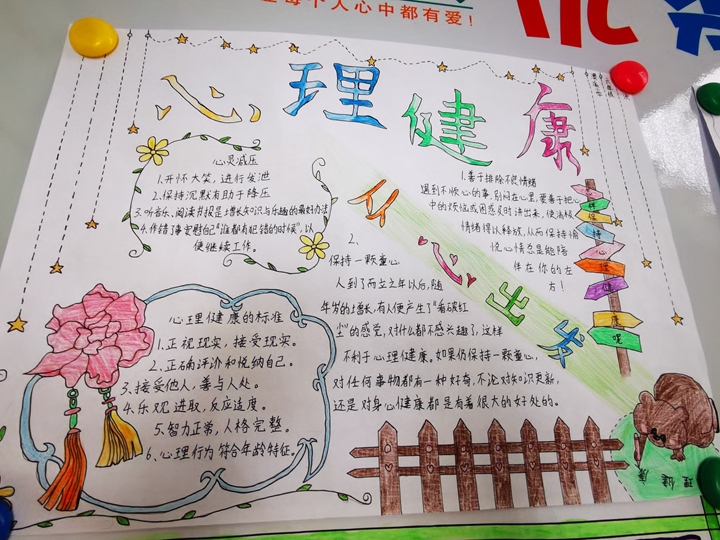 每个人心中都有爱！
心理健康
从心出发
心灵减压
1.开怀大笑，进行发泄
2.保持沉默有助于降压
3.听音乐、阅读书报是增长知识与乐趣的最好办法
4.作错了事安慰自己“谁都有犯错的时候”，以
便继续工作。
1.善于排除不良情绪
遇到不顺心的事，别闷在心里，要善于把心
中的烦恼或困惑及时讲出来，使消极
情绪得以释放，从而保持愉
悦心情总是能陪
伴在你的左
右！
2.
保持一颗童心
人到了而立之年以后，随
年岁的增长，有人便产生了“看破红
尘”的感觉，对什么都不感兴趣了，这样
不利于心理健康。如果仍保持一颗童心，
对任何事物都有一种好奇，不论对知识更新，
还是对身心健康都是有着很大的好处的。
心理健康的标准
1.正视现实，接受现实。
2.正确评价和悦纳自己。
3.接受他人，善与人处。
4.乐观进取，反应适度。
5.智力正常，人格完整。
6.心理行为符合年龄特征。
保
持
心
理
健
康